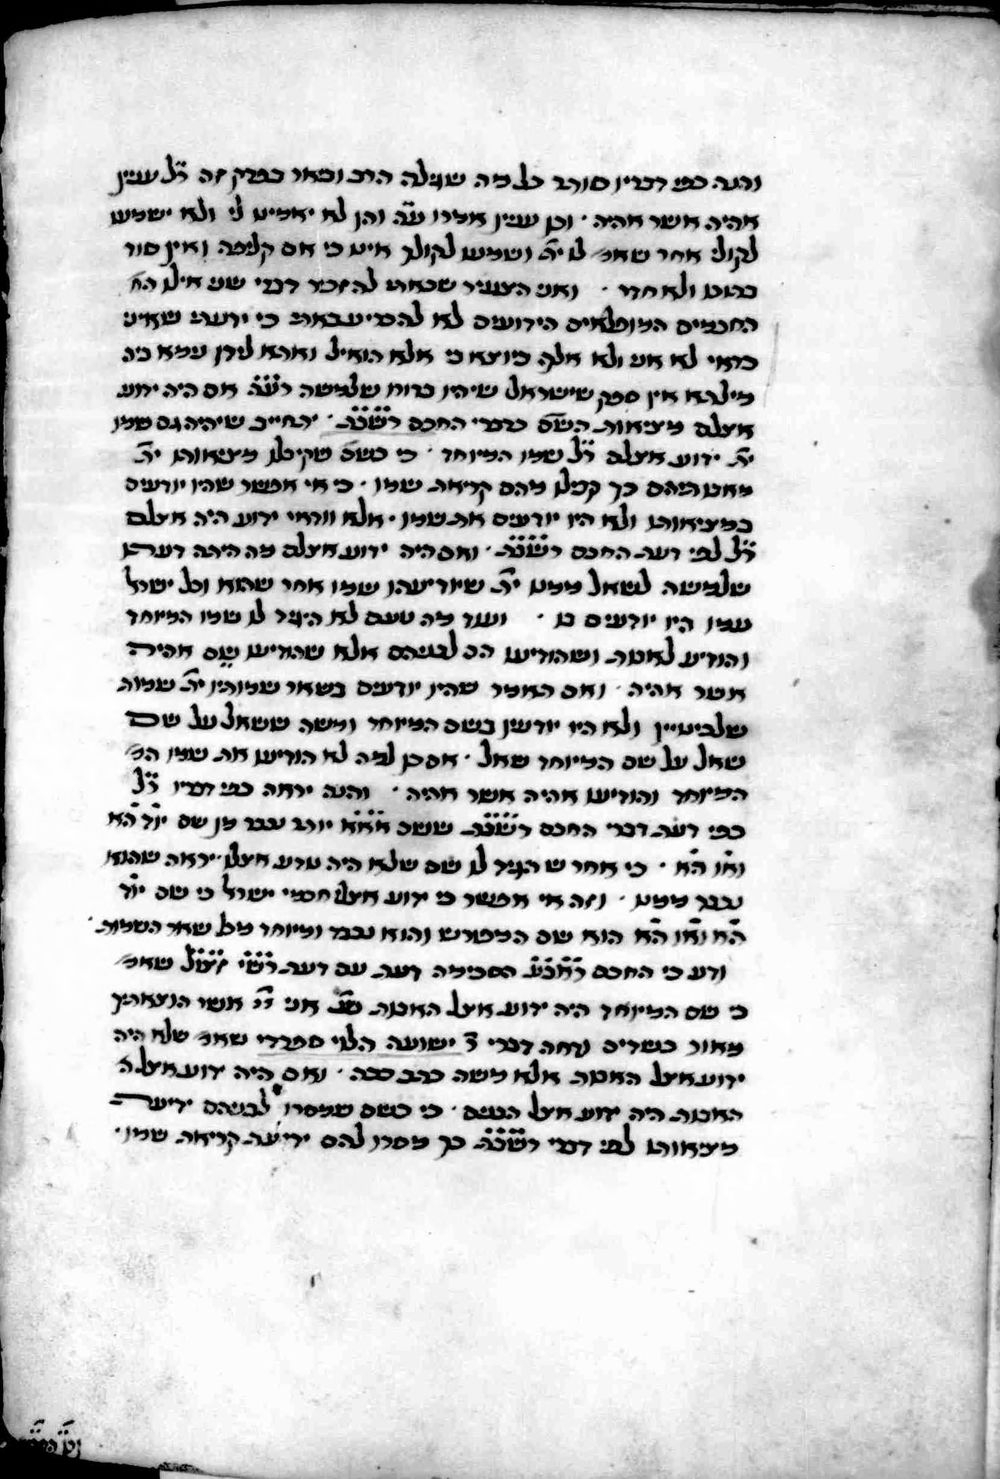 והנה כפי דבריו סותר כל מה שגילה הרב ובאר בפרק זה ר״ל ענין
אהיה אשר אהיה · וכן ענין אמרו ע״ה והן לא יאמינו לי ולא ישמעו
לקולי אחר שאמ׳ לו ית׳ ושמעו לקולך אינו כי אם קליפה ואין סוד
בתוכו ולא חדר · ואני הצעיר שבאתי להזכיר דברי שני אילו הח׳
החכמים המופלאים הידועים לא להכריע באתי כי ידעתי שאיני
כדאי לא אני ולא אלף כיוצא בי אלא הואיל ואתא לידן נימא בה
מילתא אין ספק שישראל שהיו בדור שלמשה רע״ה אם היה ידוע
אצלם מציאות השם כדברי החכם רשב״ג · יתחייב שיהיה גם שמו
ית׳ ידוע אצלם ר״ל שמו המיוחד · כי כשם שקיבלו מציאותו ית׳
מאבותיהם כך קבלו מהם קריאת שמו · כי אי אפשר שהיו יודעים
במציאותו ולא היו יודעים את שמו · אלא וודאי ידוע היה אצלם
ר״ל לפי דעת החכם רשב״ג · ואם היה ידוע אצלם מה היתה דעתו
שלמשה לשאול ממנו ית׳ שיודיעהו שמו אחר שהוא וכל ישראל
עמו היו יודעים בו · ועוד מה טעם לא היגיד לו שמו המיוחד
והודיע לאבות ושהודיעו הם לבניהם אלא שהודיעו שם אהיה
אשר אהיה · ואם תאמר שהיו יודעים בשאר שמותיו ית׳ שמות
שלכינויין ולא היו יודעין בשם המיוחד ומשה ששאל על שם
שאל על שם המיוחד שאל · אם כן למה לא הודיעו את שמו המ׳
המיוחד והודיעו אהיה אשר אהיה · והנה יראה כפי דבריו ר״ל
כפי דעת דברי החכם רשב״ג ששם אא״א יותר נכבד מן שם יוד הא
ואו הא · כי אחר שהגיד לו שם שלא היה נודע אצלו יראה שהוא
נכבד ממנו · וזה אי אפשר כי ידוע אצל חכמי ישראל כי שם יוד
הא ואו הא הוא שם המפורש והוא נכבד ומיוחד מכל שאר השמות ·
ודע כי החכם ראב״ע הסכימה דעתו עם דעת רש״י זצ״ל שאמ׳
כי שם המיוחד היה ידוע אצל האבות שנ׳ אני יי אשר הוצאתיך
מאור כשדים ודחה דברי ר׳ ישועה הלוי ספרדי שאמ׳ שלא היה
ידוע אצל האבות אלא משה כתב ככה · ואם היה ידוע אצל ה
האבות היה ידוע אצל הבנים · כי כשם שמסרו לבניהם ידיעת
מציאותו לפי דברי רשב״ג כך מסרו להם ידיעת קריאת שמו ·